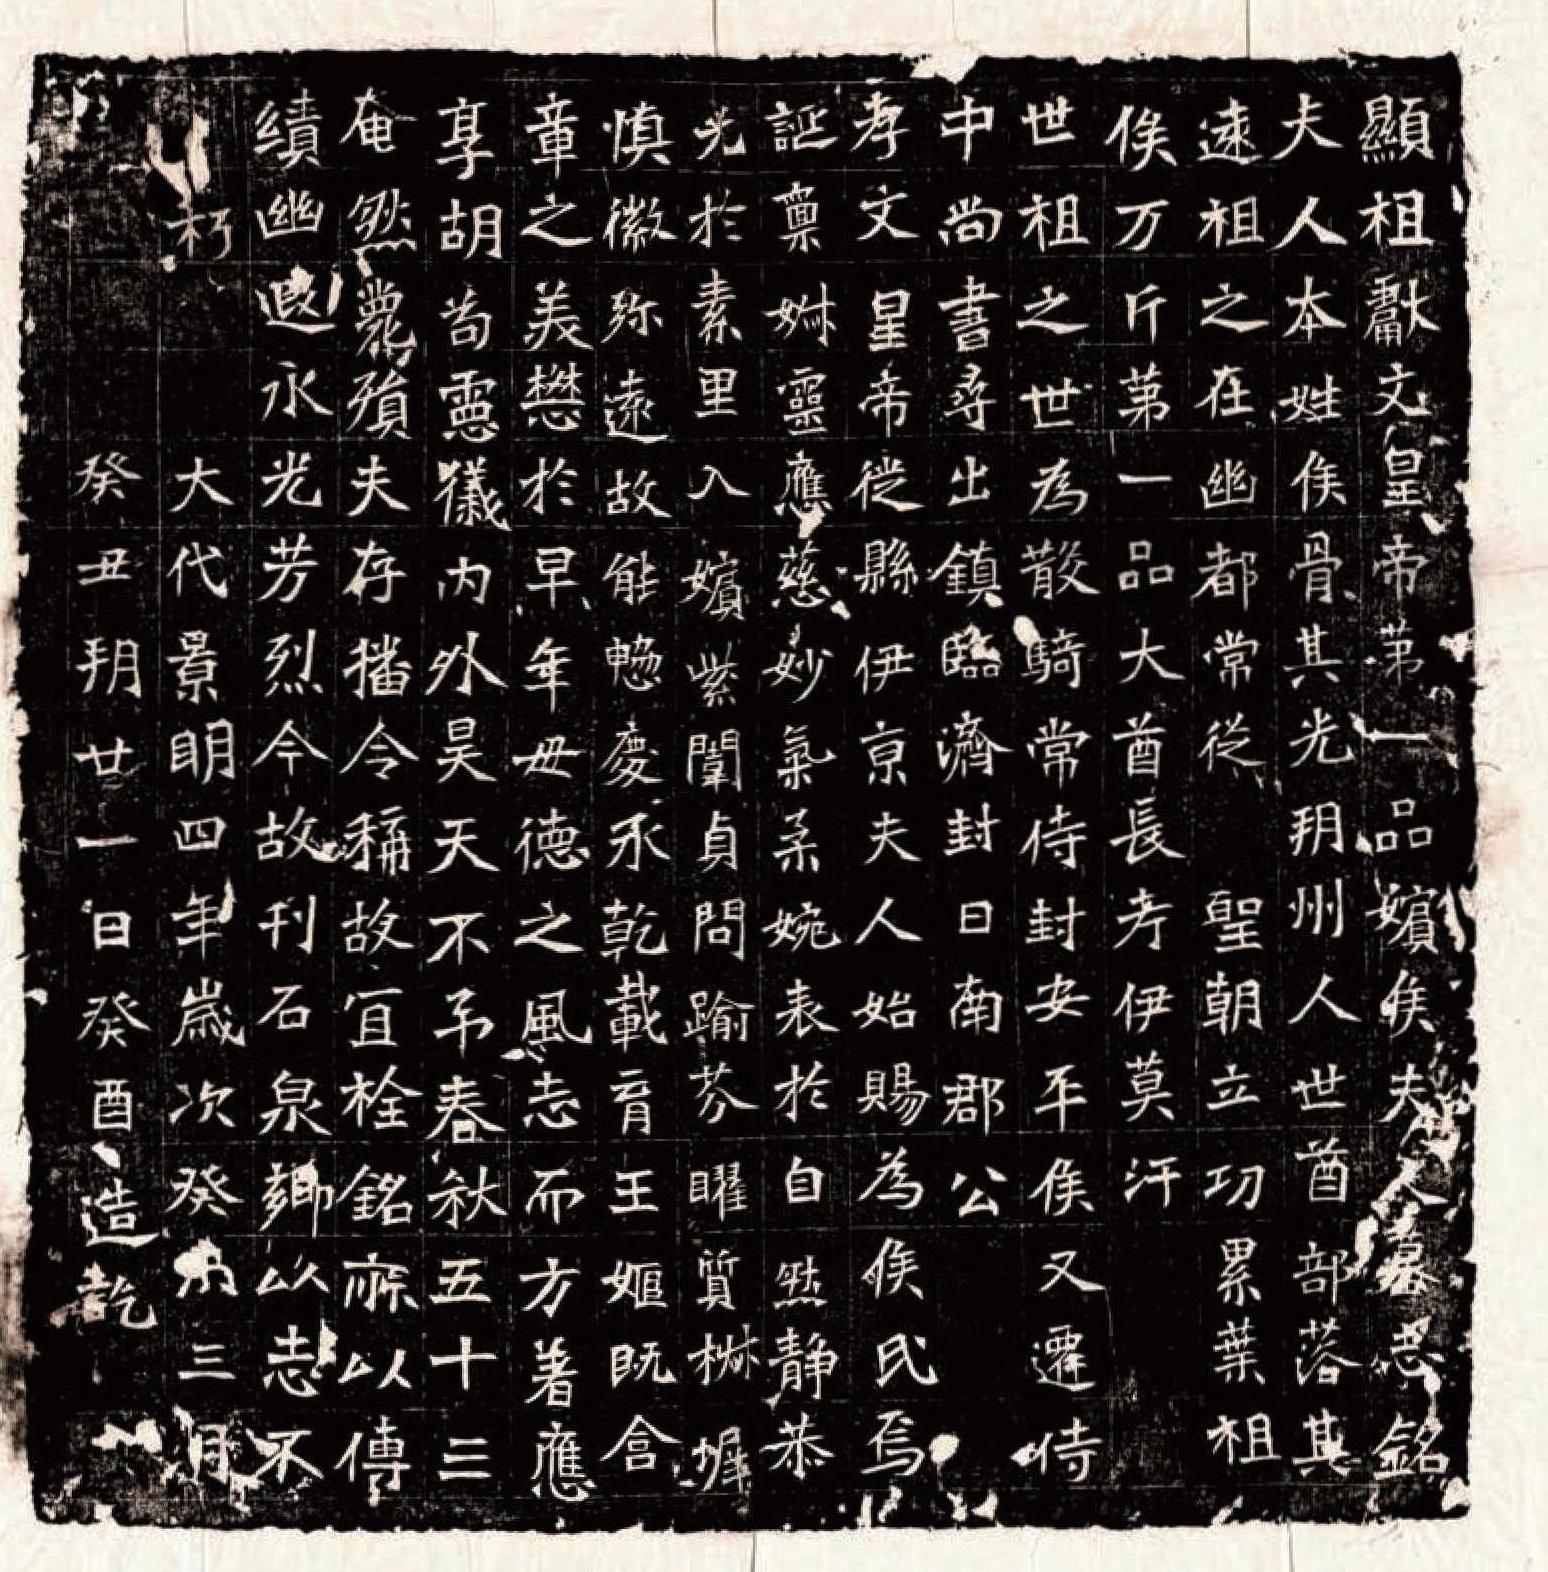 顯祖獻文皇帝第一品嬪侯夫人墓志銘
夫人本姓侯骨其光朔州人世酋部落其
遠祖之在幽都常從 聖朝立功累葉祖
侯万斤第一品大酋長考伊莫汗
世祖之世為散騎常侍封安平侯又遷侍
中尚書尋出鎮臨濟封日南郡公
孝文皇帝徙縣伊京夫人始賜為侯氏焉
誕稟婌靈應慈妙氣柔婉表於自然靜恭
光於素里入嬪紫闈貞問踰芬曜質椒墀
慎徽弥遠故能憁慶承乾載育王姬既含
章之美懋於早年毋德之風志而方著應
享胡耇憲儀內外昊天不弔春秋五十三
奄然薨殞夫存播令稱故宜栓銘㡾以傳
績幽遐永光芳烈今故刊石泉鄉以志不
朽 大代景明四年歲次癸未三月
癸丑朔廿一日癸酉造訖